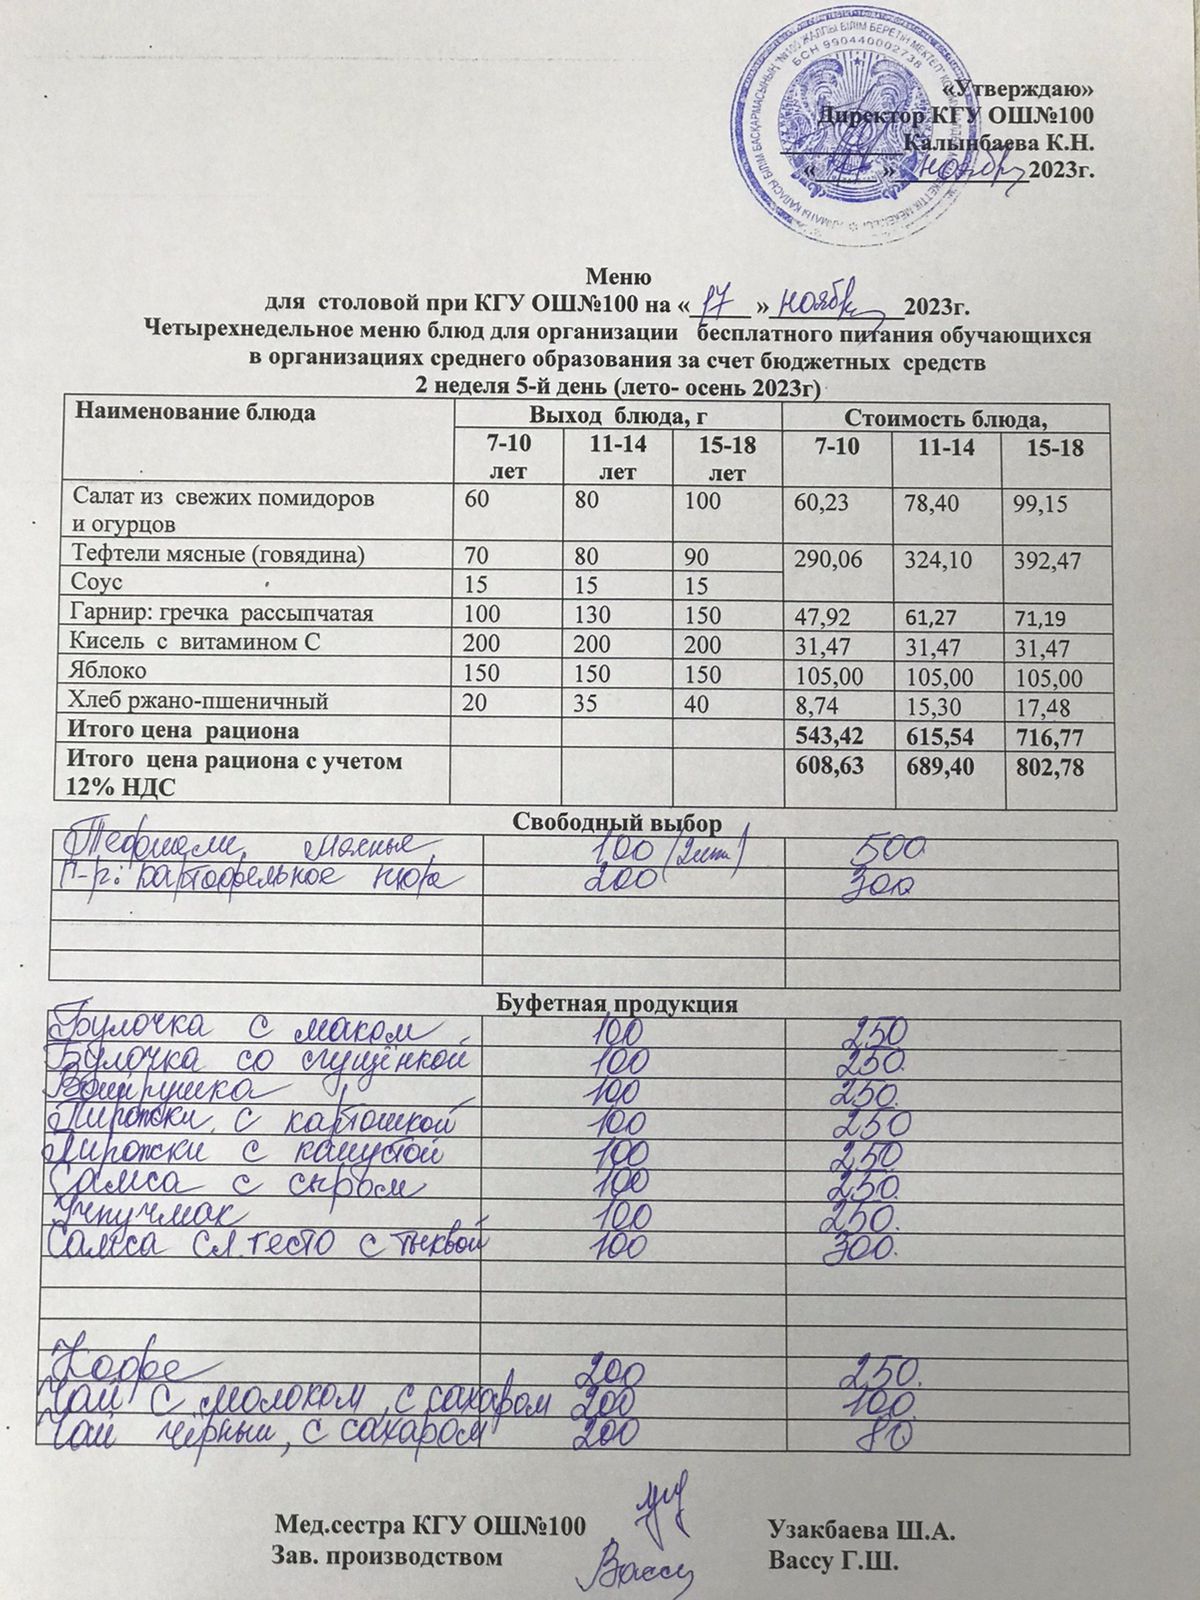 БСН 990440002738
«Утверждаю»
Директор КГУ ОШ№100
Калынбаева К.Н.
«17» ноября 2023г.
Меню
для столовой при КГУ ОШ№100 на «17» ноября 2023г.
Четырехнедельное меню блюд для организации бесплатного питания обучающихся
в организациях среднего образования за счет бюджетных средств
2 неделя 5-й день (лето- осень 2023г)
Наименование блюда Выход блюда, г Стоимость блюда,
7-10 лет 11-14 лет 15-18 лет 7-10 11-14 15-18
Салат из свежих помидоров и огурцов 60 80 100 60,23 78,40 99,15
Тефтели мясные (говядина) 70 80 90 290,06 324,10 392,47
Соус 15 15 15
Гарнир: гречка рассыпчатая 100 130 150 47,92 61,27 71,19
Кисель с витамином С 200 200 200 31,47 31,47 31,47
Яблоко 150 150 150 105,00 105,00 105,00
Хлеб ржано-пшеничный 20 35 40 8,74 15,30 17,48
Итого цена рациона 543,42 615,54 716,77
Итого цена рациона с учетом 12% НДС 608,63 689,40 802,78
Свободный выбор
Тефтели мясные 100 (2шт) 500
Г-р: картофельное пюре 200 300
Буфетная продукция
Булочка с маком 100 250
Булочка со сгущёнкой 100 250.
Ватрушка 100 250.
Пирожки с картошкой 100 250
Пирожки с капустой 100 250
Самса с сыром 100 250.
Учпучмак 100 250.
Самса сл. тесто с тыквой 100 300.
Кофе 200 250.
Чай с молоком, с сахаром 200 100.
Чай чёрный, с сахаром 200 80
Мед.сестра КГУ ОШ№100 Узакбаева Ш.А.
Зав. производством Вассу Вассу Г.Ш.